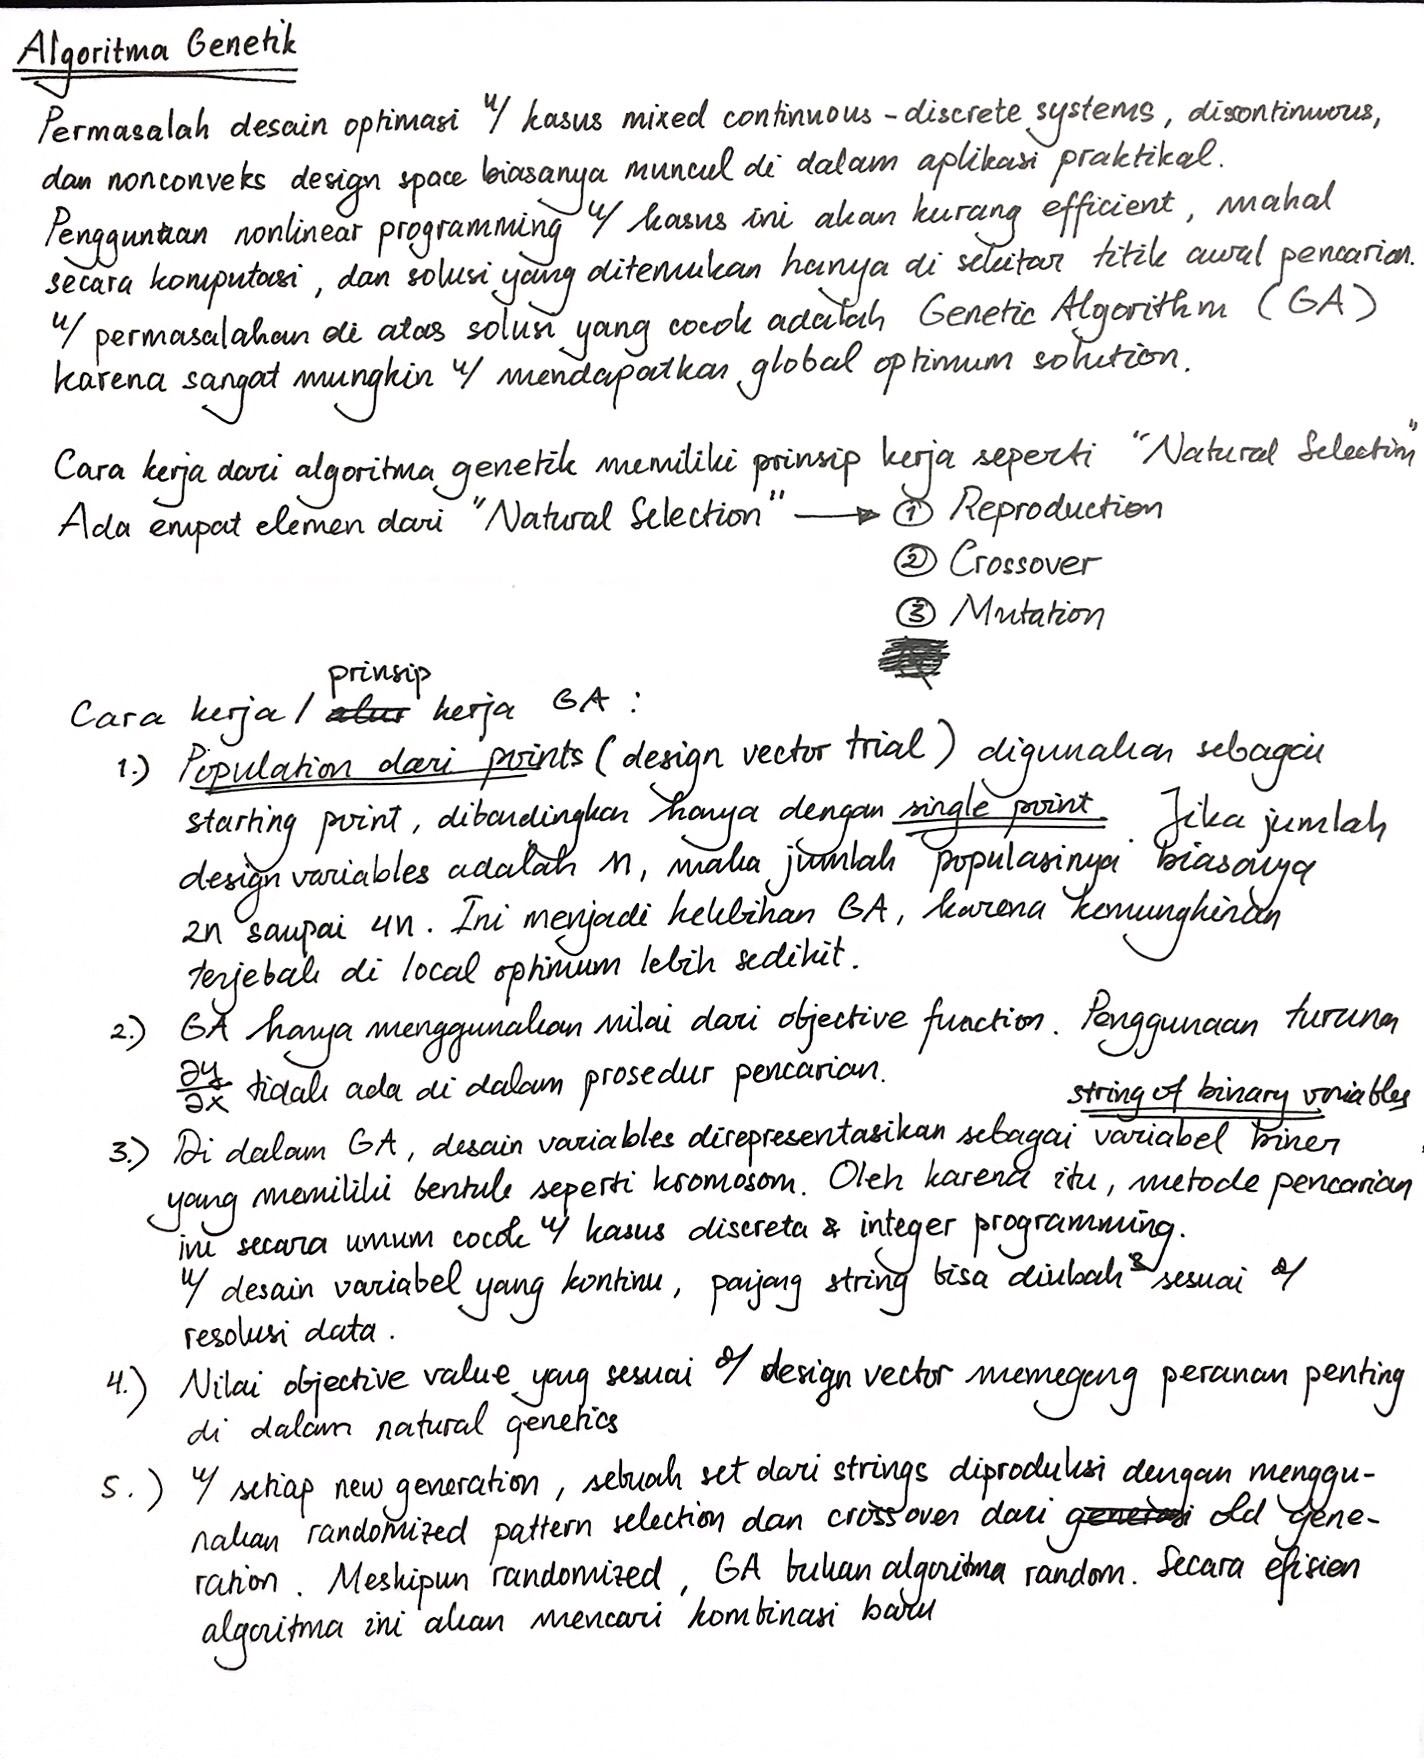 Algoritma Genetik
Permasalah desain optimasi u/ kasus mixed continuous - discrete systems, discontinuous,
dan nonconveks design space biasanya muncul di dalam aplikasi praktikal.
Penggunaan nonlinear programming u/ kasus ini akan kurang efficient, mahal
secara komputasi, dan solusi yang ditemukan hanya di sekitar titik awal pencarian.
u/ permasalahan di atas solusi yang cocok adalah Genetic Algorithm (GA)
karena sangat mungkin u/ mendapatkan global optimum solution.
Cara kerja dari algoritma genetik memiliki prinsip kerja seperti "Natural Selection"
Ada empat elemen dari "Natural Selection" → ① Reproduction
② Crossover
③ Mutation
prinsip
Cara kerja / alur kerja GA :
1.) Population dari points (design vector trial) digunakan sebagai
starting point, dibandingkan hanya dengan single point. Jika jumlah
design variables adalah n, maka jumlah populasinya biasanya
2n sampai 4n. Ini menjadi kelebihan GA, karena kemungkinan
terjebak di local optimum lebih sedikit.
2.) GA hanya menggunakan nilai dari objective function. Penggunaan turunan
∂y/∂x tidak ada di dalam prosedur pencarian.
string of binary variables
3.) Di dalam GA, desain variables direpresentasikan sebagai variabel biner
yang memiliki bentuk seperti kromosom. Oleh karena itu, metode pencarian
ini secara umum cocok u/ kasus discreta & integer programming.
u/ desain variabel yang kontinu, panjang string bisa diubah² sesuai d/
resolusi data.
4.) Nilai objective value yang sesuai d/ design vector memegang peranan penting
di dalam natural genetics
5.) u/ setiap new generation, sebuah set dari strings diproduksi dengan menggu-
nakan randomized pattern selection dan crossover dari generasi old gene-
ration. Meskipun randomized, GA bukan algoritma random. Secara efisien
algoritma ini akan mencari kombinasi baru